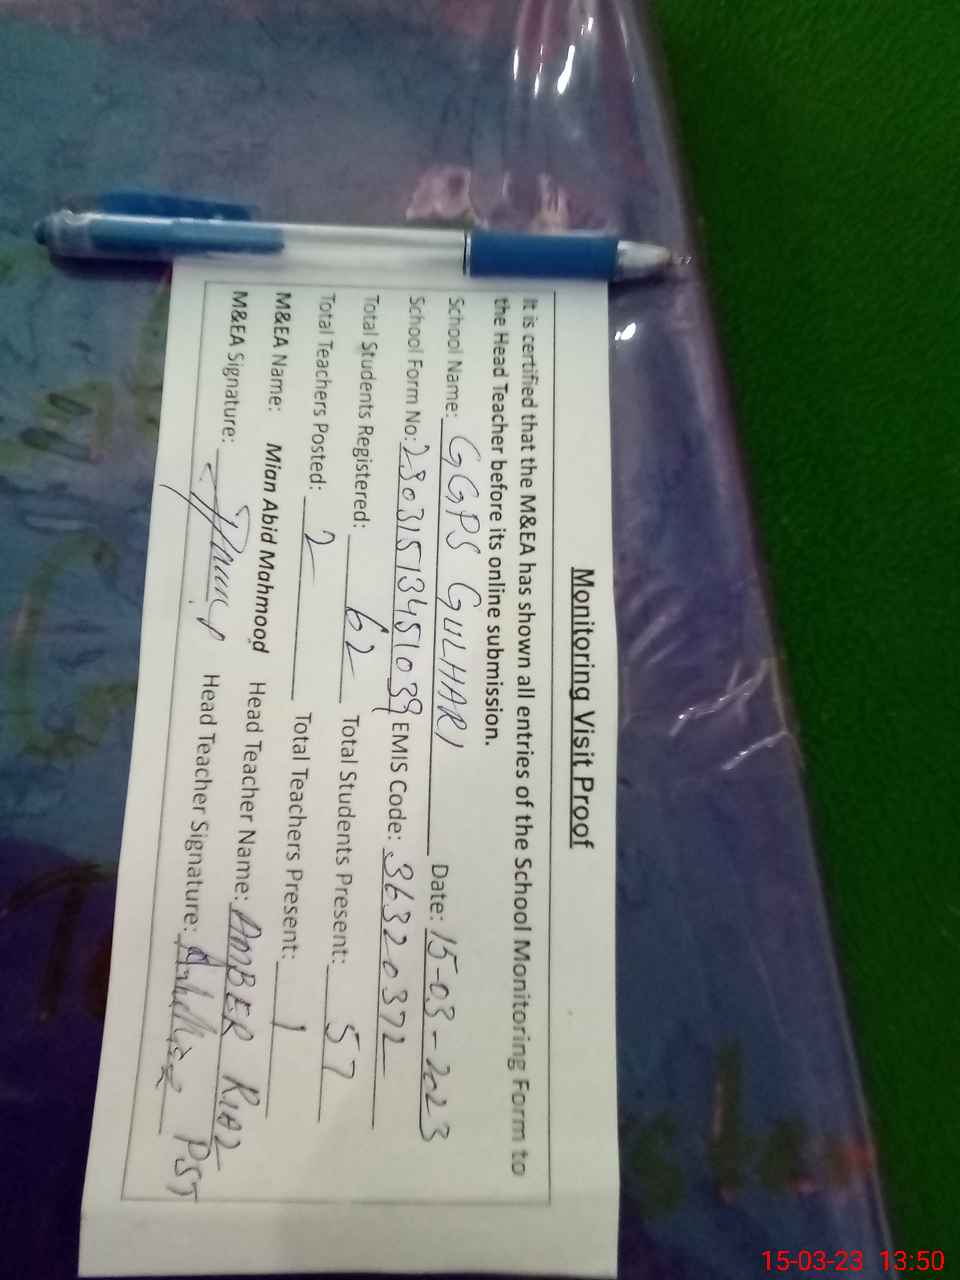 Monitoring Visit Proof
It is certified that the M&EA has shown all entries of the School Monitoring Form to
the Head Teacher before its online submission.
School Name: GGPS GULHARI Date: 15-03-2023
School Form No: 23031513451039 EMIS Code: 36320372
Total Students Registered: 62 Total Students Present: 57
Total Teachers Posted: 2 Total Teachers Present: 1
M&EA Name: Mian Abid Mahmood Head Teacher Name: AMBER RIAZ PST
M&EA Signature: Head Teacher Signature:
15-03-23 13:50